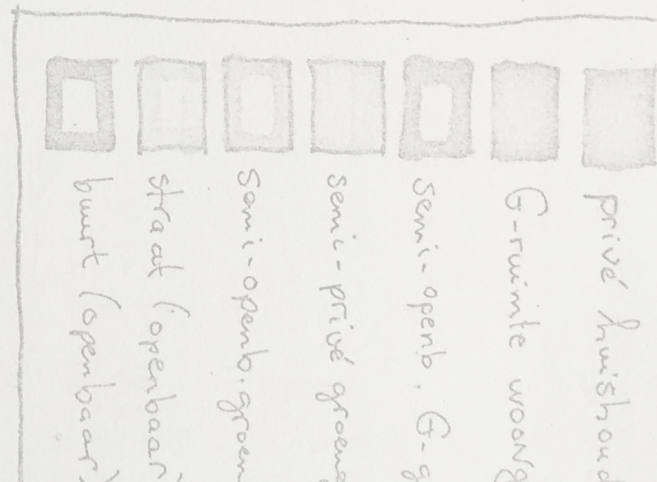 privé huishoud
G-ruimte woong
semi-openb. G-g
semi-privé groeng
semi-openb. groen
straat (openbaar)
buurt (openbaar)